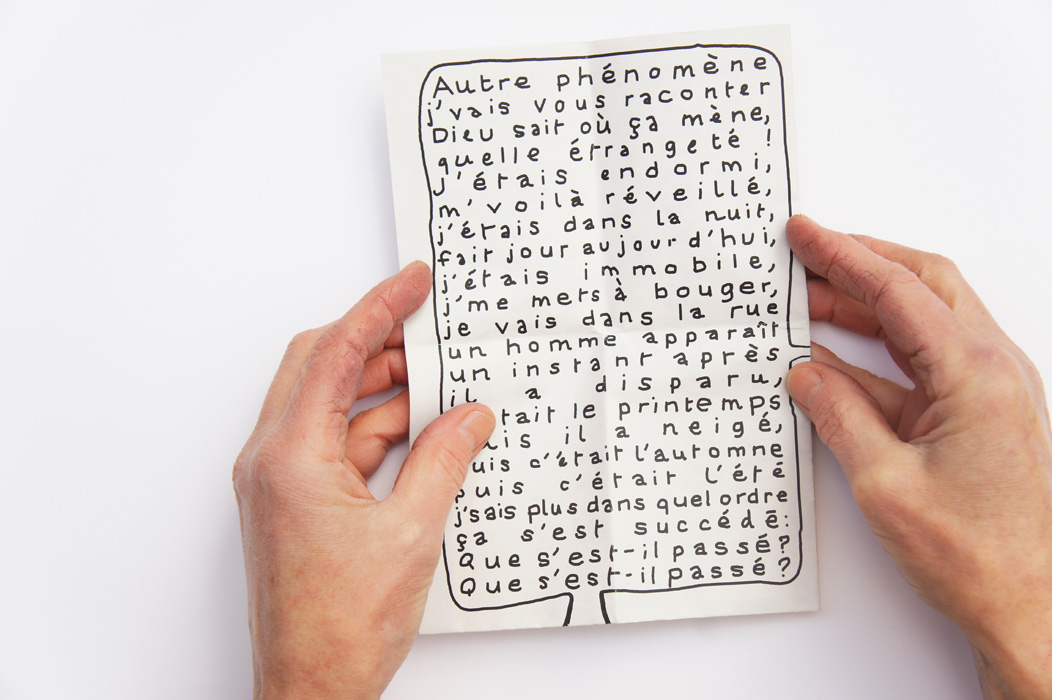 Autre phénomène
j'vais vous raconter
Dieu sait où ça mène,
quelle étrangeté !
j'étais endormi,
m'voilà réveillé,
j'étais dans la nuit,
fait jour aujourd'hui,
j'étais immobile,
j'me mets à bouger,
je vais dans la rue
un homme apparaît
un instant après
il a disparu,
tait le printemps
is il a neigé,
uis c'était l'automne
puis c'était l'été
j'sais plus dans quel ordre
ça s'est succédé:
Que s'est-il passé?
Que s'est-il passé?